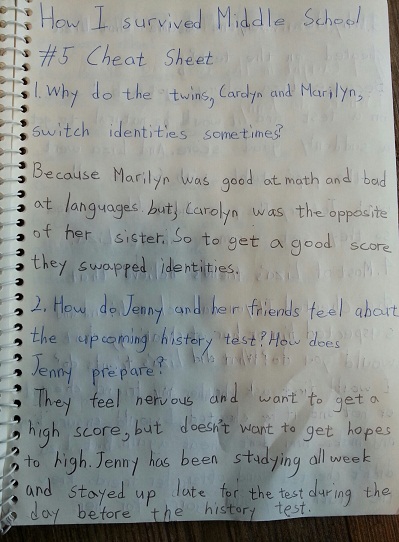 How I survived Middle School
#5 Cheat Sheet
1. Why do the twins, Carolyn and Marilyn,
switch identities sometimes?
Because Marilyn was good at math and bad
at languages but, Carolyn was the opposite
of her sister. So to get a good score
they swapped identities.
2. How do Jenny and her friends feel about
the upcoming history test? How does
Jenny prepare?
They feel nervous and want to get a
high score, but doesn't want to get hopes
to high. Jenny has been studying all week
and stayed up late for the test during the
day before the history test.